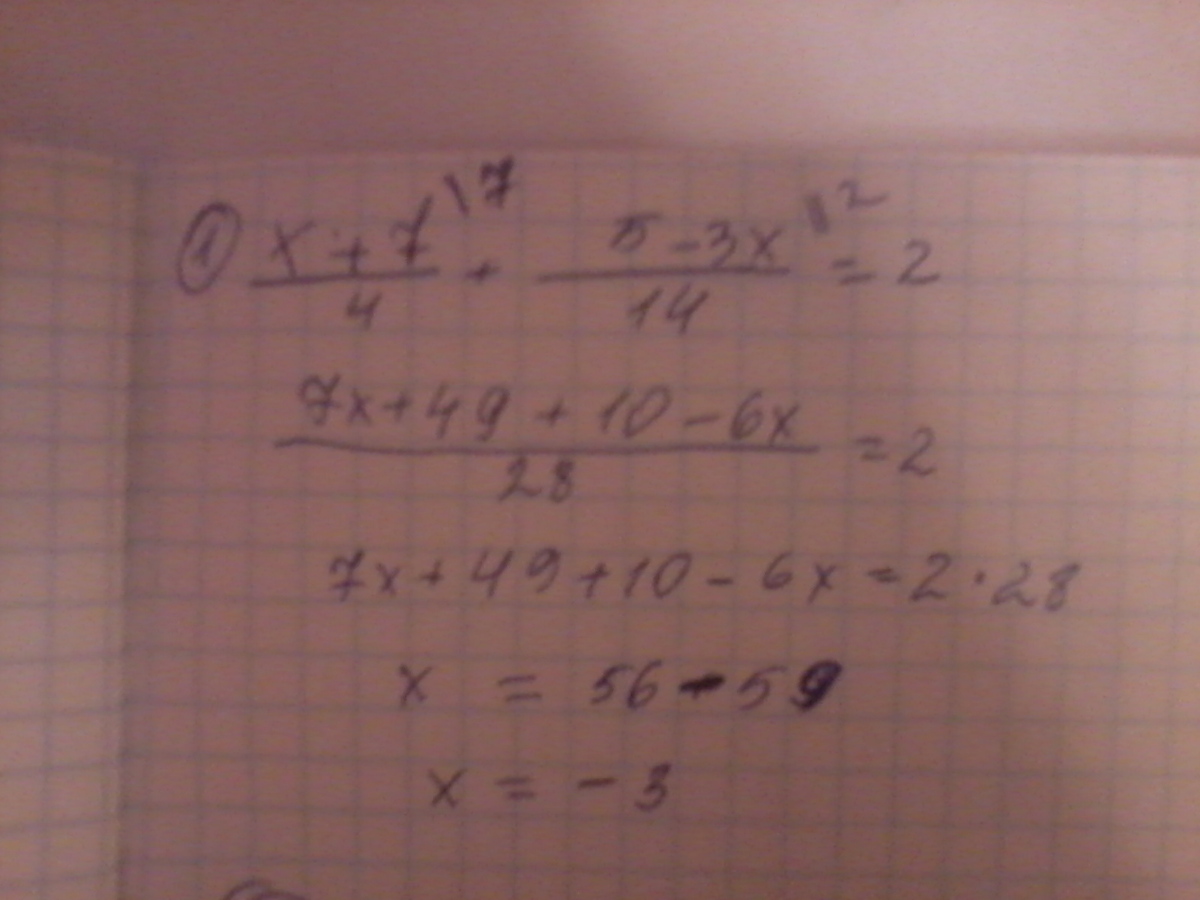 ① (x + 7)/4 \7 + (5 - 3x)/14 \2 = 2
(7x + 49 + 10 - 6x)/28 = 2
7x + 49 + 10 - 6x = 2 · 28
x = 56 - 59
x = - 3